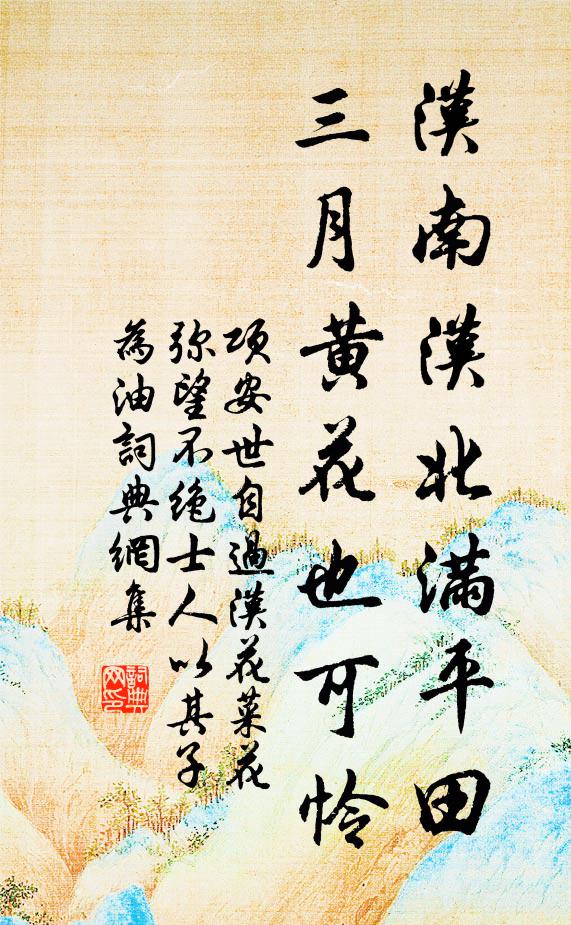 漢南漢北滿平田
三月黃花也可憐
項安世自過漢花菜花
弥望不絶士人以其子
為油詞典網集
詞典
网印